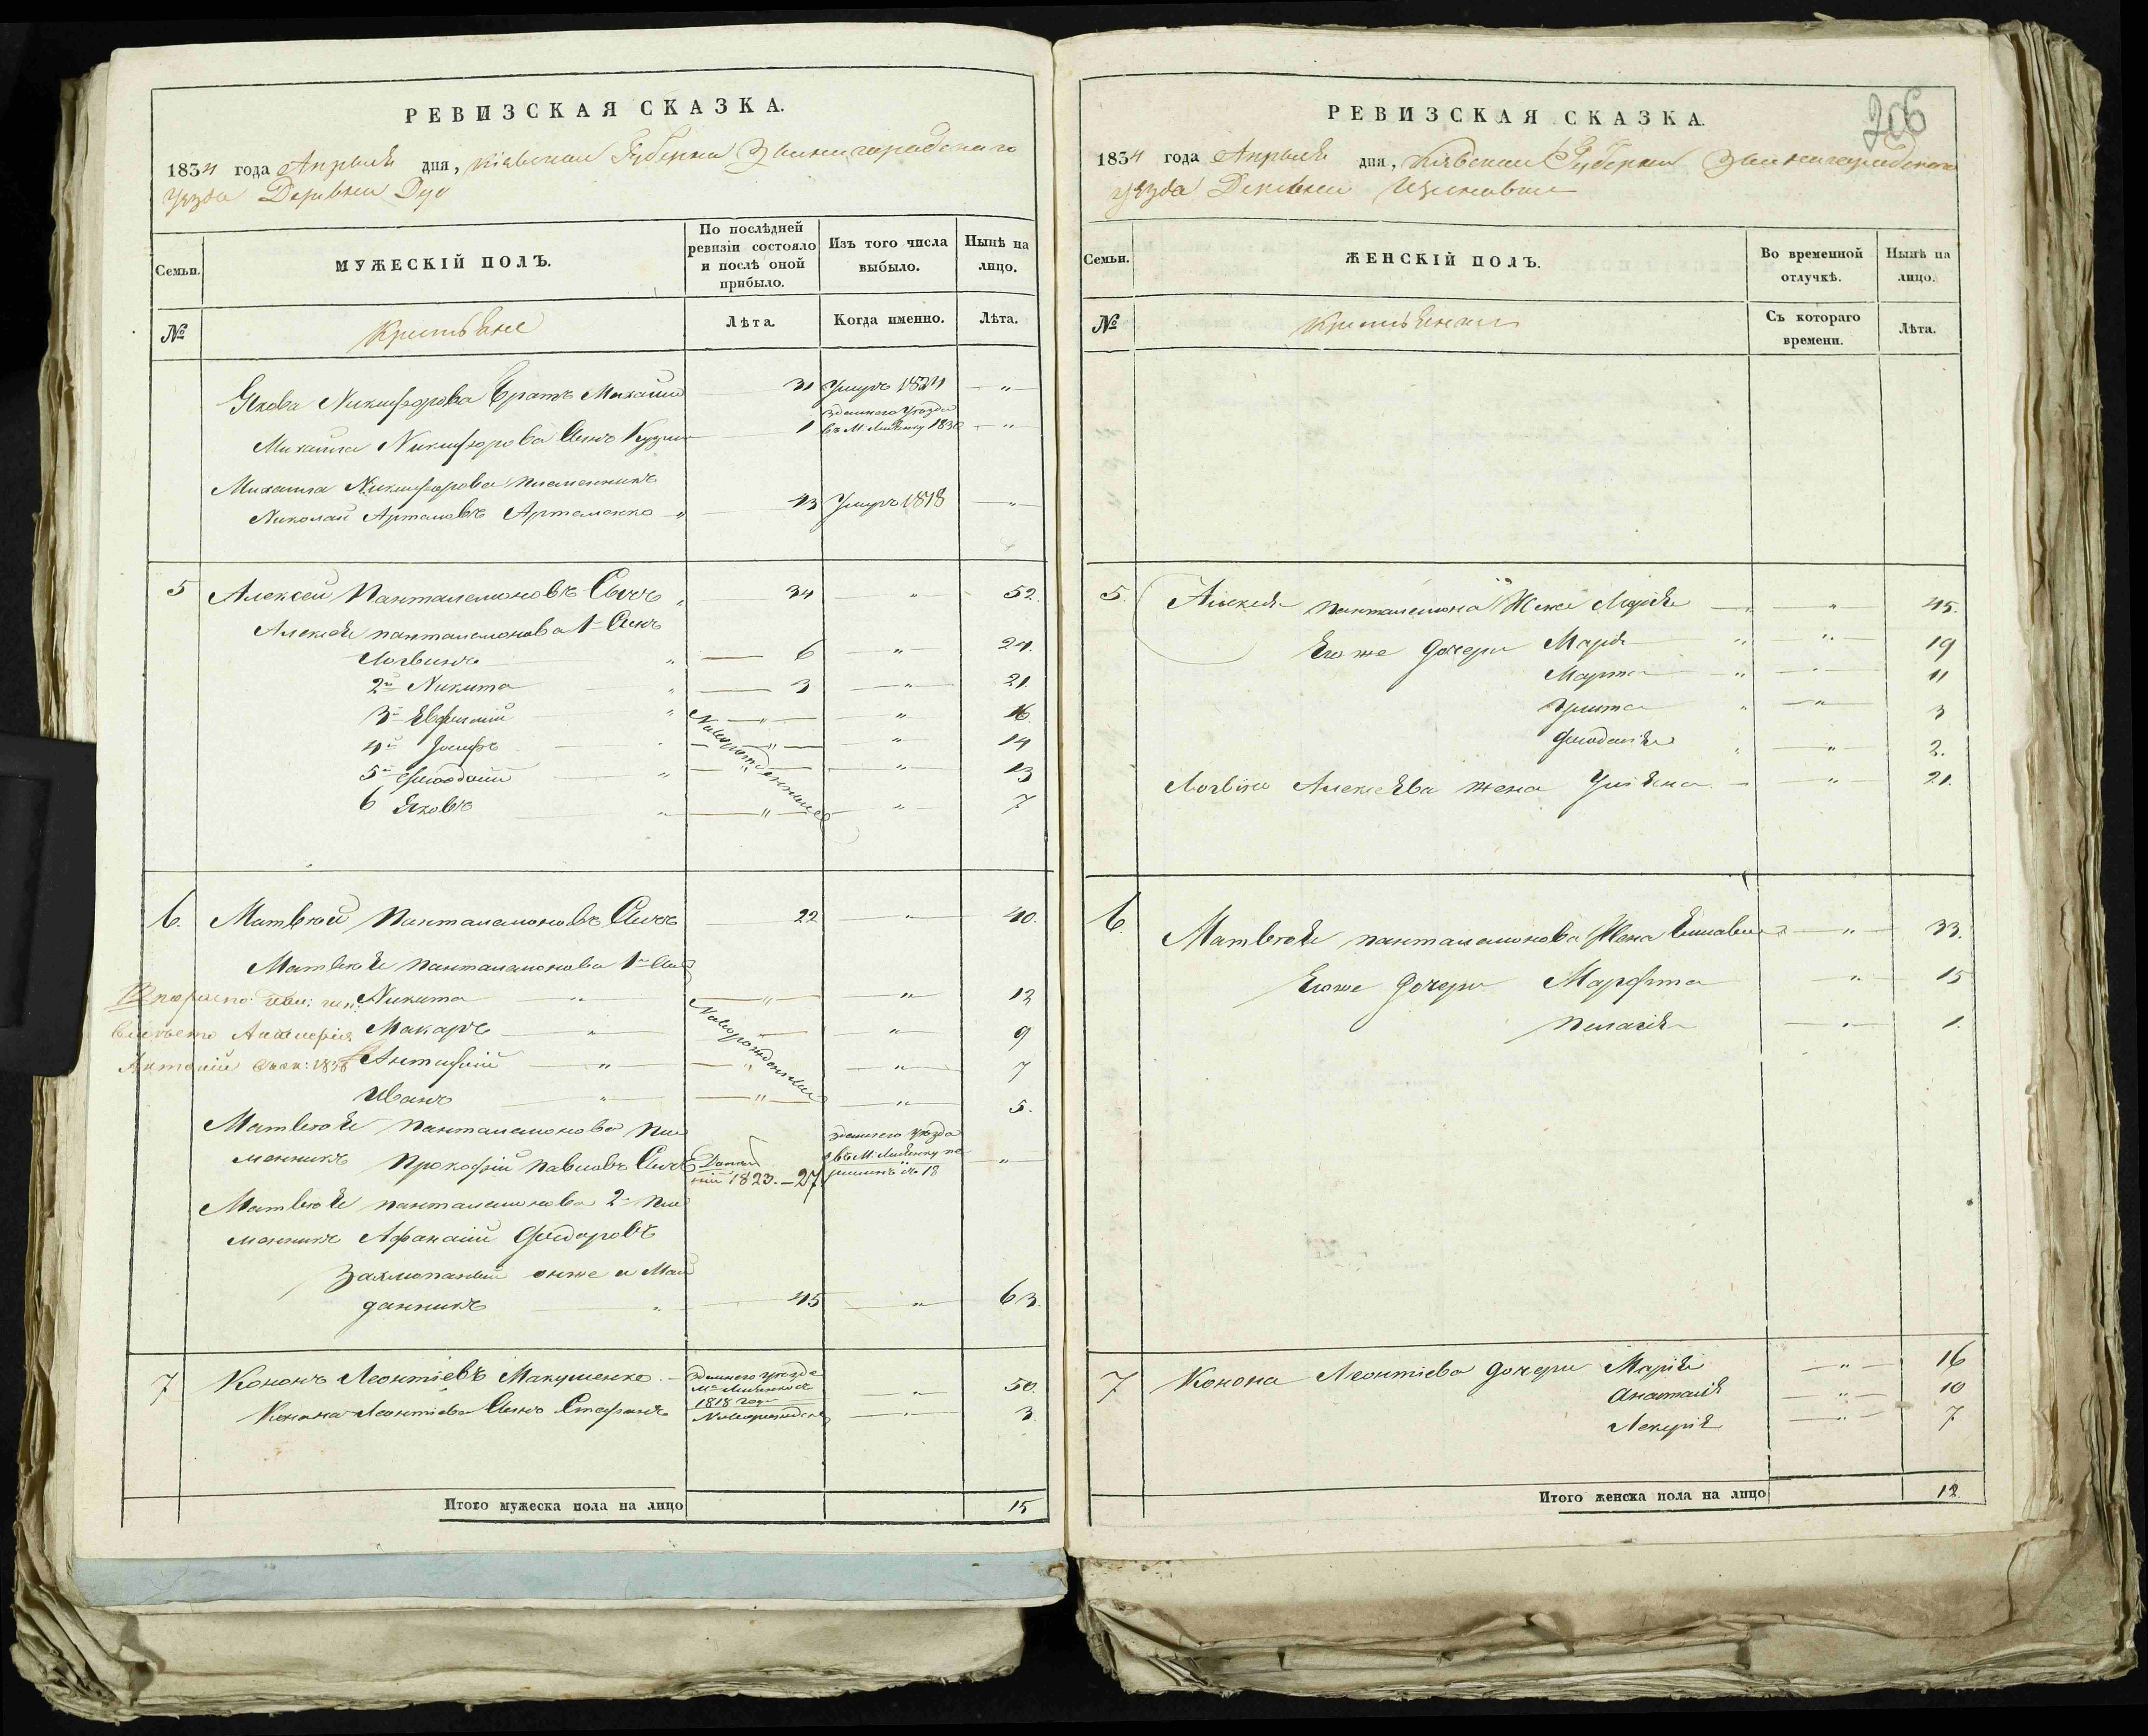 РЕВИЗСКАЯ СКАЗКА.
1834 года Апрѣля дня, Кіевской Губерніи Звенигородскаго
уѣзда Деревни
Семьи.
МУЖЕСКІЙ ПОЛЪ.
По послѣдней ревизіи состояло и послѣ оной прибыло.
Изъ того числа выбыло.
Нынѣ на лицо.
№
Крестьяне
Лѣта.
Когда именно.
Лѣта.
Якова Никифорова братъ Михаилъ 31 Умеръ 18
Михаила Никифорова Сынъ Кузьма 1 здешнего уѣзда въ М. Лисянку 1830 "
Михаила Никифорова племенникъ
Николай Артемовъ Артеменко " 43 Умеръ 1818 "
5 Алексей Панталемоновъ Сычъ " 34 " 52.
Алексѣя панталемонова 1й Сынъ
Логвинъ " 6 " 24.
2й Никита " 3 " 21.
3й Евфимій " Новорожденные " 16.
4й Іосифъ " " 14
5й Феодосій " " 13
6 Яковъ " " 7
6. Матвей Панталемоновъ Сычъ 22 " 40.
Матвея Панталемонова 1й Сынъ
Никита " Новорожденные " 12
Макаръ " " 9
вместо
Антоній 1858 Антифій " " 7
Иванъ " " 5.
Матвея Панталемонова пле
менникъ Прокофій Павловъ Сычъ 1823. – 27 здешнего уѣзда въ М. Лисянку 18 "
Матвея панталемонова 2й пле
менникъ Афанасій Федоровъ
онже и Май
данникъ " 45 " 63.
7 Кононъ Леонтіевъ Макушенко – здешнего уѣзда 1818 года " 50.
Конона Леонтіева Сынъ Стефанъ Новорожденъ " 3
Итого мужеска пола на лицо 15
РЕВИЗСКАЯ СКАЗКА.
206
1834 года Апрѣля дня, Кіевской Губерніи Звенигородскаго
уѣзда Деревни
Семьи.
ЖЕНСКІЙ ПОЛЪ.
Во временной отлучкѣ.
Нынѣ на лицо.
№
Крестьянки
Съ котораго времени.
Лѣта.
5. Алексея панталемона Жена Марія " 45.
Егоже дочери Марія " 19
Марта " 11
Улита " 3
Феодосія " 2.
Логвина Алексѣева жена Ульяна – " 21.
6. Матвея панталемонова Жена " 33.
Егоже дочери Марфита " 15
Пелагія " 1.
7 Конона Леонтіева дочери Марія " 16
Анатасія " 10
Лекерія " 7
Итого женска пола на лицо 12